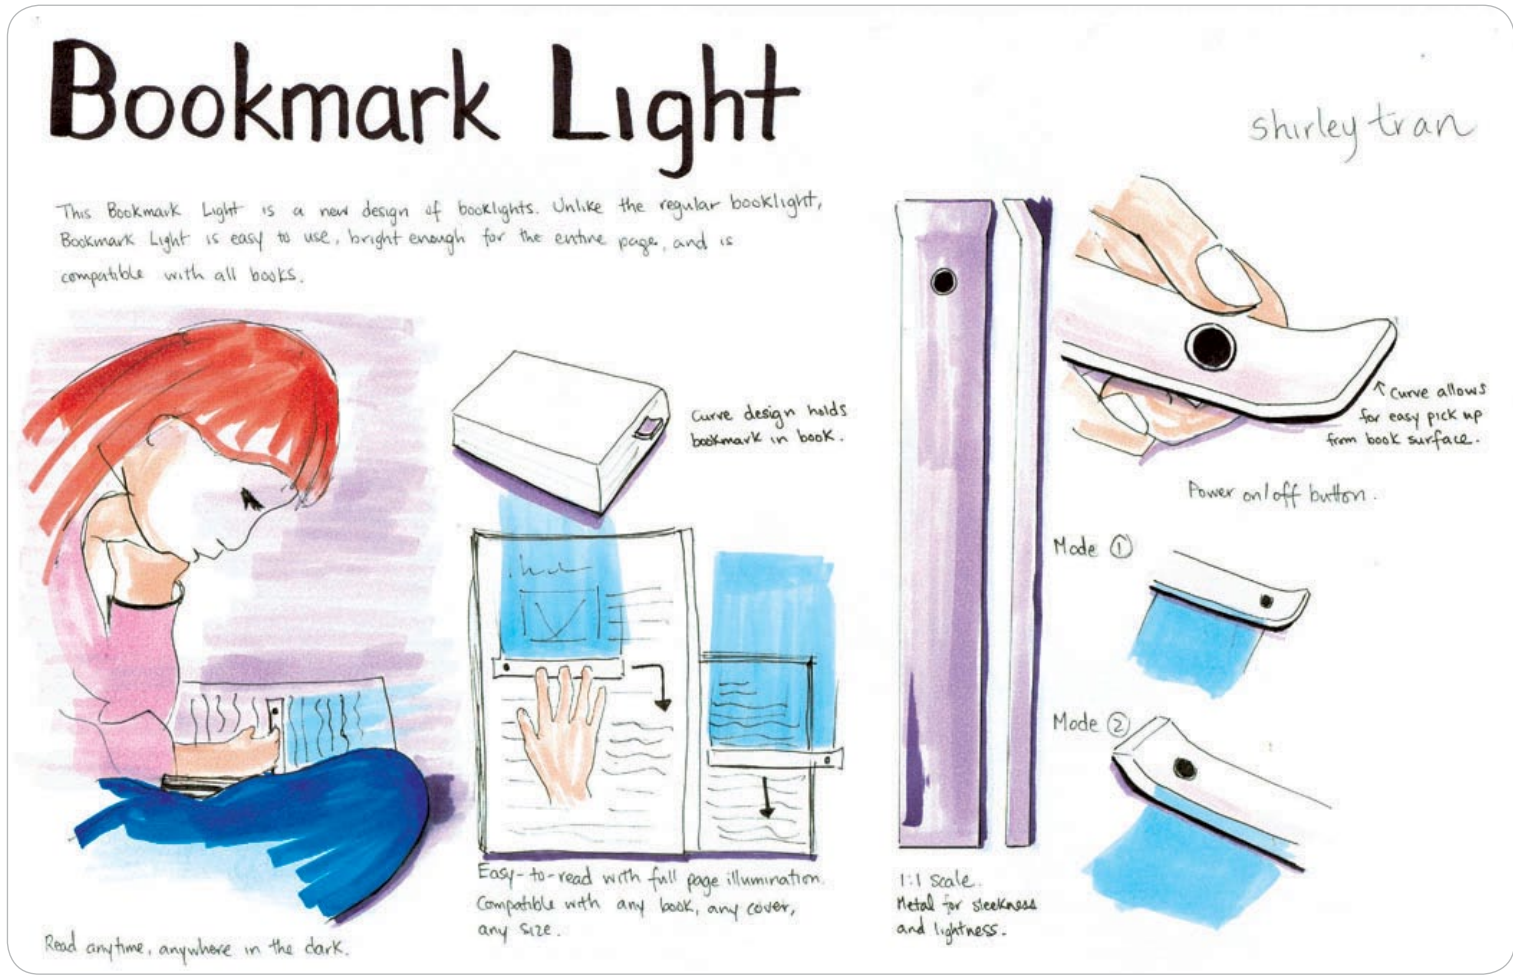 Bookmark Light
shirley tran
This Bookmark Light is a new design of booklights. Unlike the regular booklight,
Bookmark Light is easy to use, bright enough for the entire page, and is
compatible with all books.
Curve design holds
bookmark in book.
Curve allows
for easy pick up
from book surface.
Power on/off button.
Mode 1
Mode 2
Easy-to-read with full page illumination.
Compatible with any book, any cover,
any size.
1:1 scale.
Metal for sleekness
and lightness.
Read anytime, anywhere in the dark.